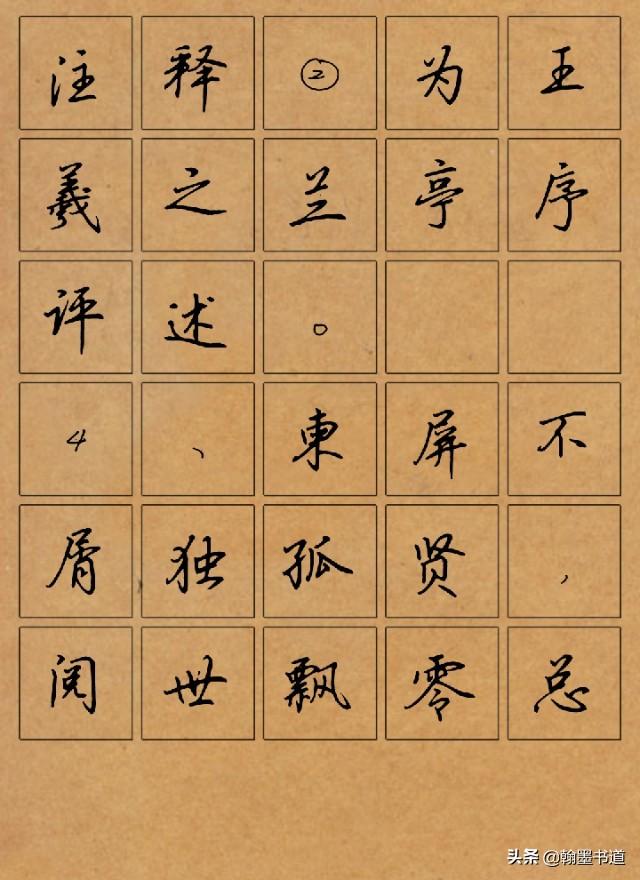 注释②为王
羲之兰亭序
评述。
4、東屏不
屑独孤贤,
阅世飘零总
头条 @翰墨书道